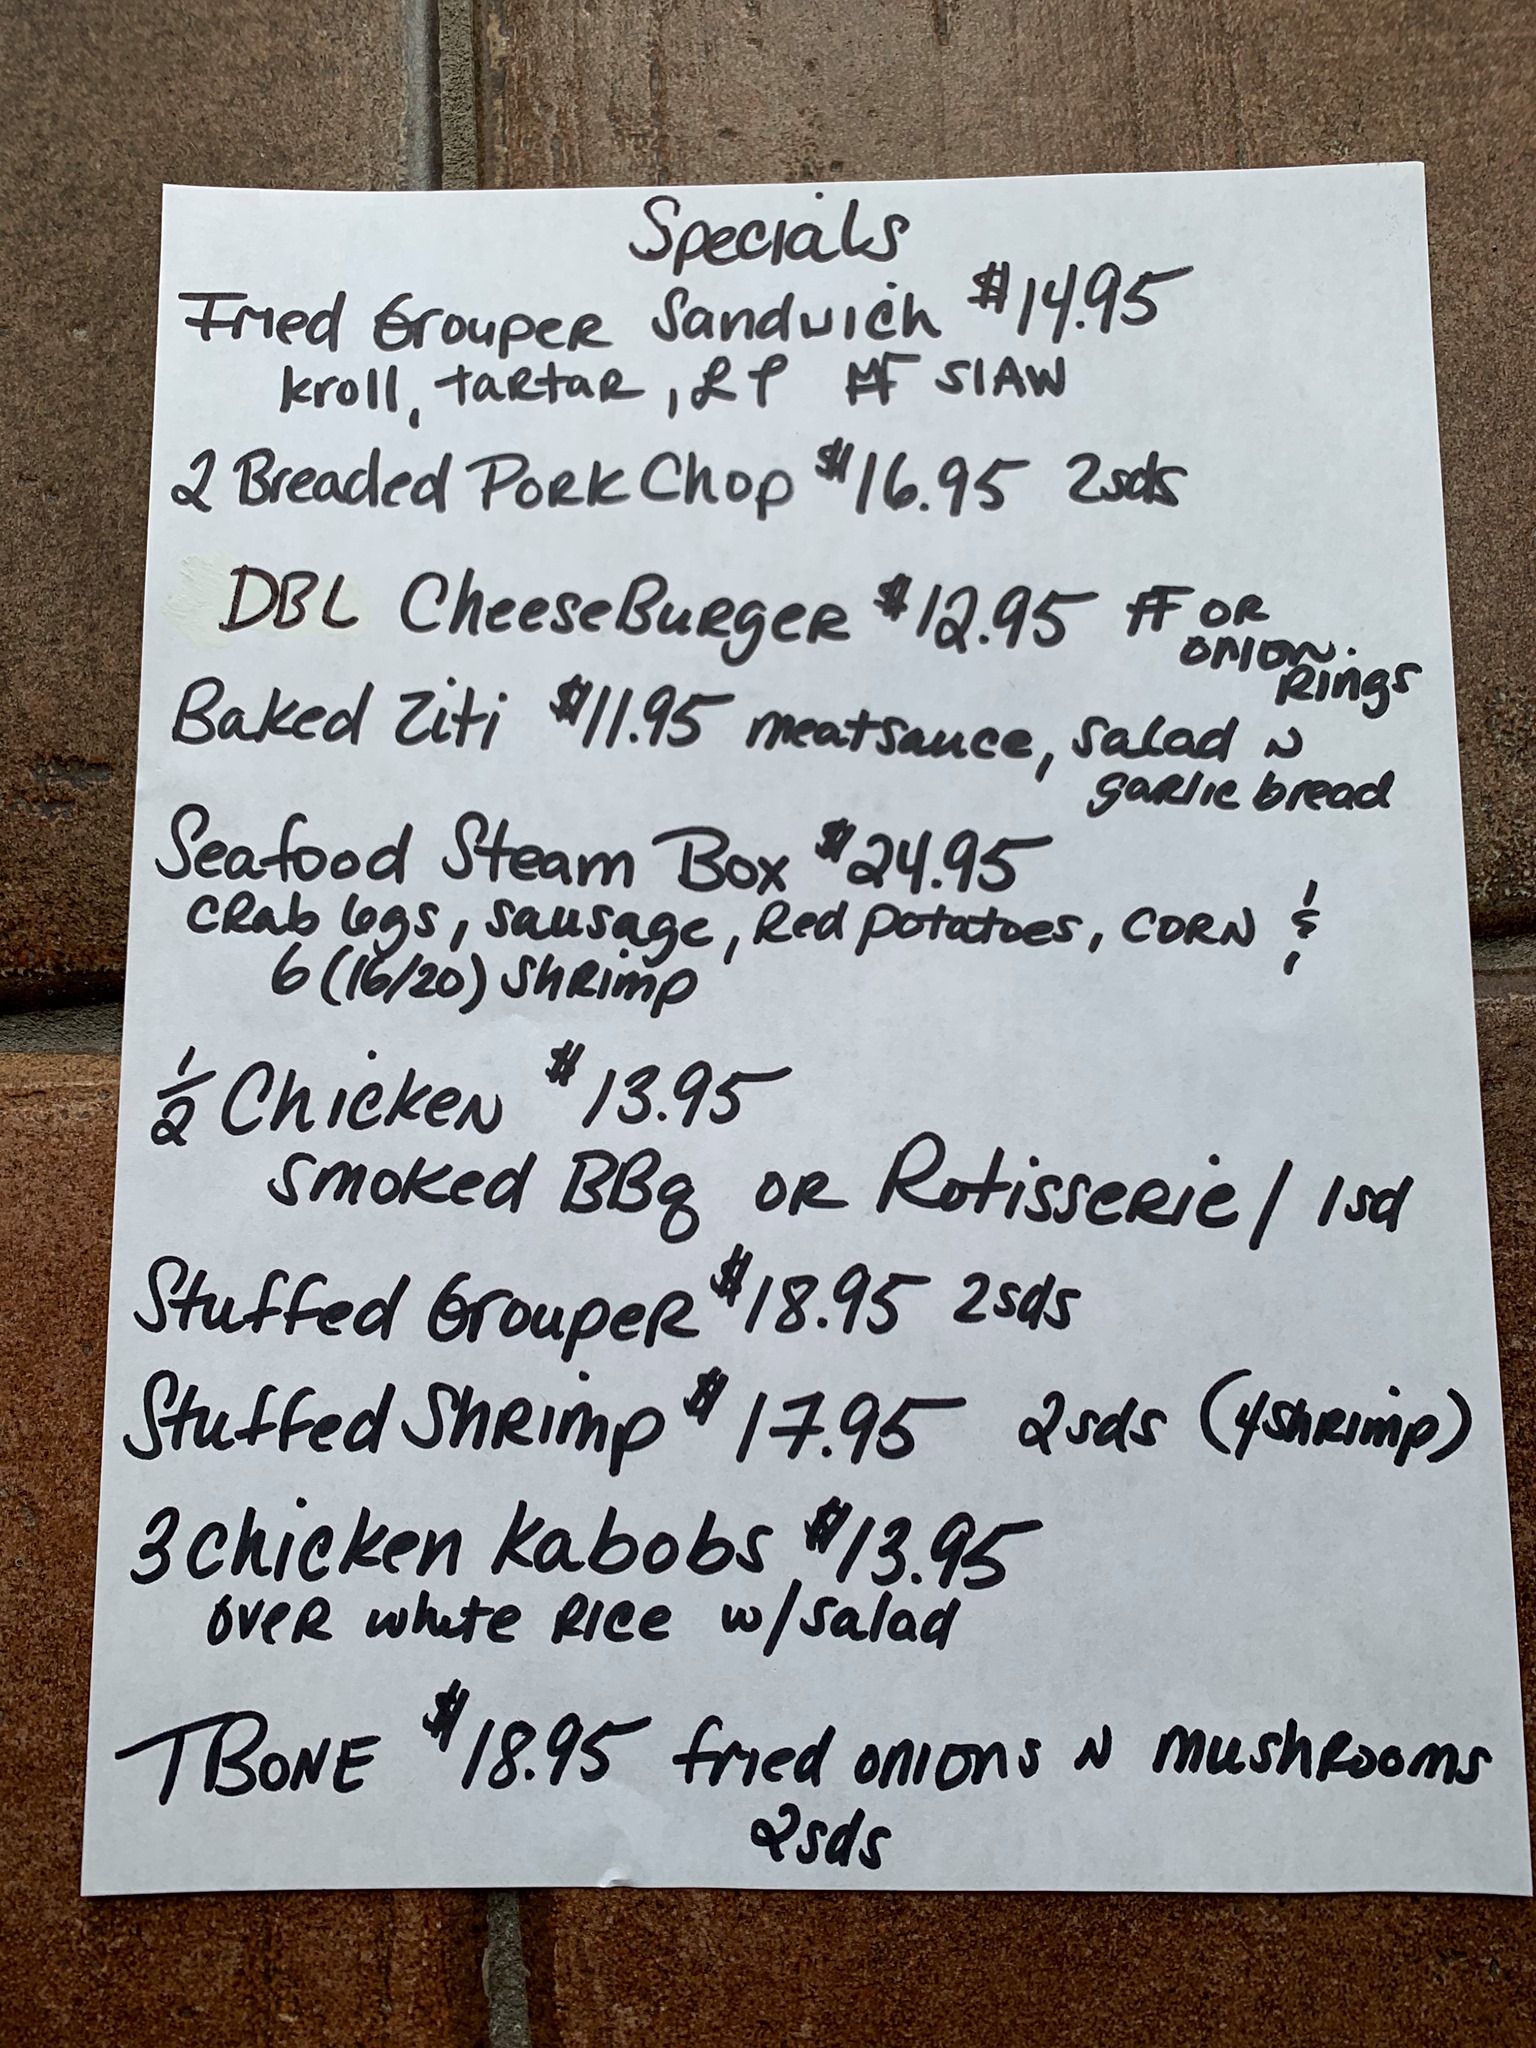 Specials
Fried Grouper Sandwich $14.95
kroll, tartar, LT FF Slaw
2 Breaded Pork Chop $16.95 2sds
DBL CheeseBurger $12.95 FF OR
onion
Rings
Baked Ziti $11.95 meatsauce, salad N
garlic bread
Seafood Steam Box $24.95
Crab legs, sausage, Red potatoes, CORN &
6 (16/20) Shrimp
1/2 Chicken $13.95
smoked BBq OR Rotisserie / 1sd
Stuffed Grouper $18.95 2sds
Stuffed Shrimp $17.95 2sds (4 shrimp)
3 chicken kabobs $13.95
over white Rice w/salad
TBONE $18.95 fried onions N mushrooms
2sds